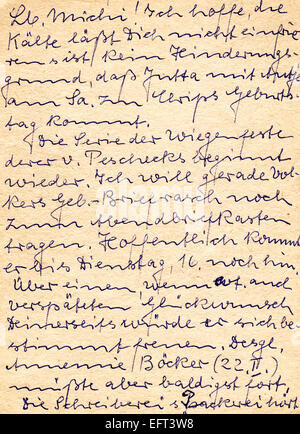 Lb. Michi! Ich hoffe, die
Kälte läßt Dich nicht einfrie
ren u. ist kein Hinderungs-
grund, daß Jutta mit
am Sa. zum Geburts-
tag kommt.
Die Serie der Wiegenfeste
derer v. Peschecks beginnt
wieder. Ich will gerade Vol-
kers Geb.-Brief rasch noch
zum Abendbriefkasten
tragen. Hoffentlich kommt
er bis Dienstag, 16. noch hin.
Über einen, wenn evt. auch
verspäteten Glückwunsch
Deinerseits würde er sich be
stimmt freuen. Desgl.
Annemie Böcker (22. II.)
müßte aber baldigst fort.
Die Schreiberei u. Packerei hört
alamy
EFT3W8